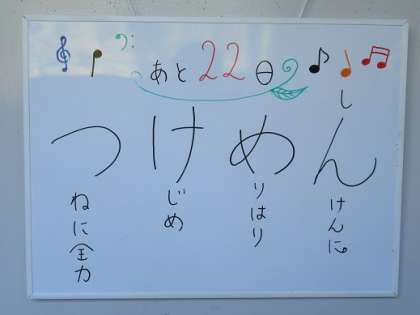 あと22日
つねに全力
けじめ
めりはり
しんけんに。